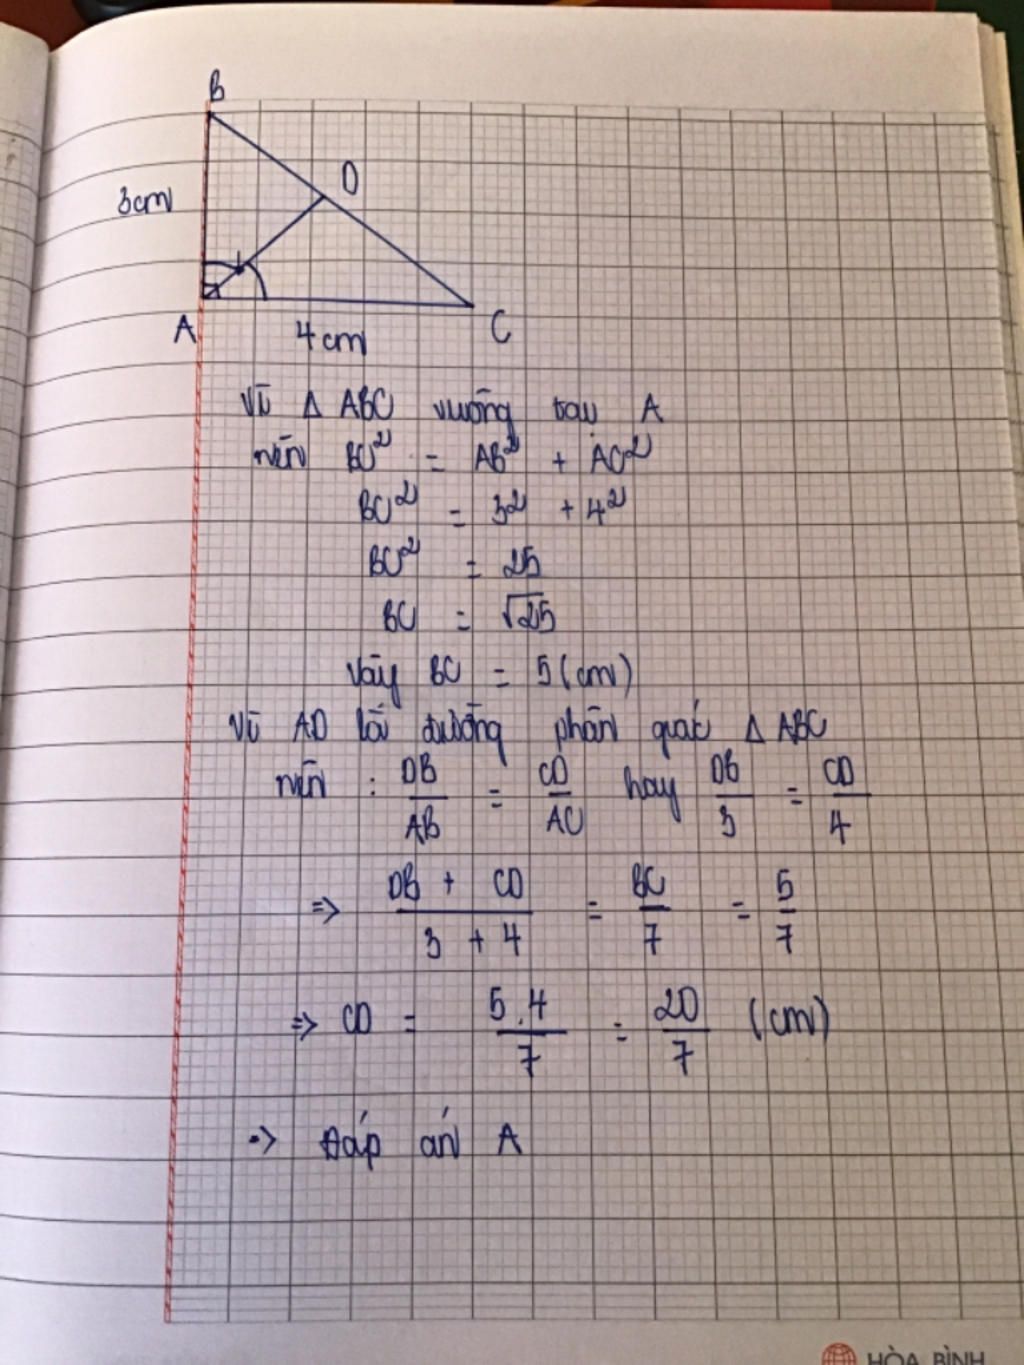 B
D
3cm
A
4cm
C
Vì Δ ABC vuông tại A
nên BC² = AB² + AC²
BC² = 3² + 4²
BC² = 25
BC = √25
Vậy BC = 5(cm)
Vì AD là đường phân giác Δ ABC
nên : DB/AB = CD/AC hay DB/3 = CD/4
=> DB + CD / 3 + 4 = BC/7 = 5/7
=> CD = 5.4/7 = 20/7 (cm)
=> Đáp án A
HÒA BÌNH